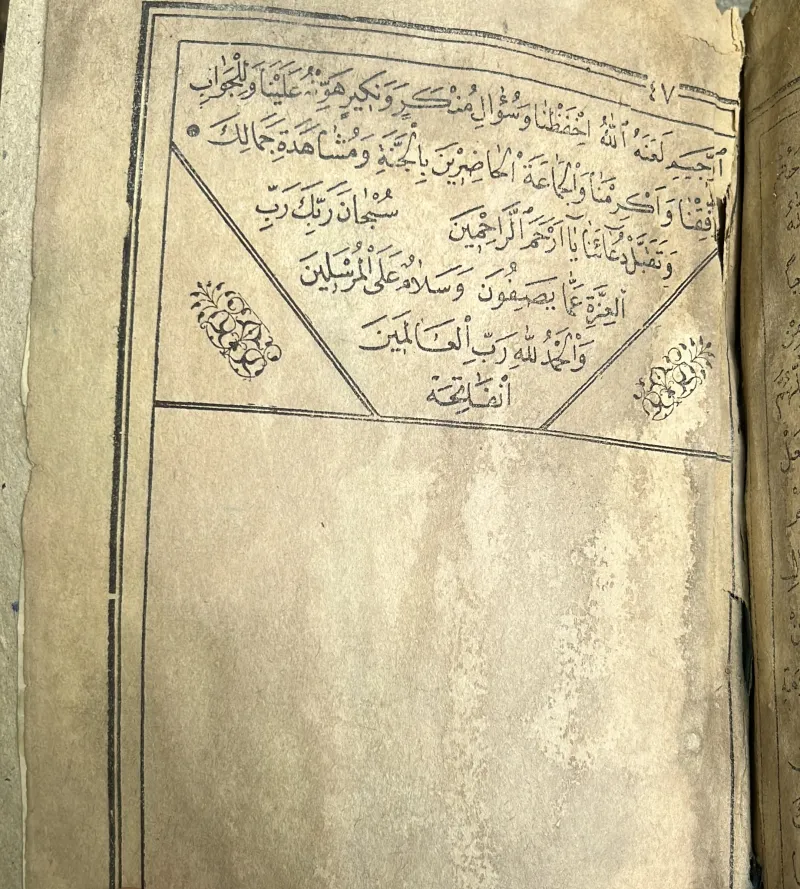 ٤٧
اَلرَّجِيمِ لَعَنَهُ ٱللّٰهُ اِحْفَظْنَا وَسُؤَالِ مُنْكَرٍ وَنَكِيرٍ هَوِّنْهُ عَلَيْنَا وَلِلْجَوَابِ
وَفِّقْنَا وَاَكْرِمْنَا وَالْجَمَاعَةَ الْحَاضِرِينَ بِالْجَنَّةِ وَمُشَاهَدَةِ جَمَالِكَ
وَتَقَبَّلْ دُعَائَنَا يَآ اَرْحَمَ الرَّاحِمِينَ سُبْحَانَ رَبِّكَ رَبِّ
الْعِزَّةِ عَمَّا يَصِفُونَ وَسَلَامٌ عَلَى الْمُرْسَلِينَ
وَالْحَمْدُ لِلّٰهِ رَبِّ الْعَالَمِينَ
اَلْفَاتِحَة